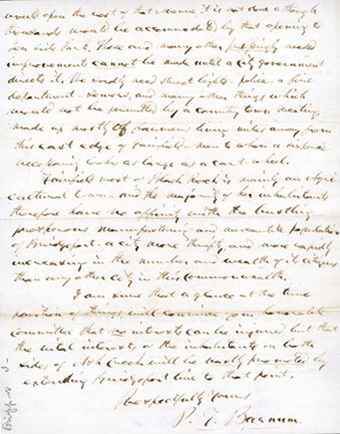 would open the cost of that avenue it is not done although
thousands would be accommodated by that opening to
Sea Side Park. These and many other pressingly needed
improvements cannot be made until a city government
directs it. We sorely need street lights - police - a fire
department - sewers, and many other things which
would not be permitted by a country town meeting
made up mostly of farmers living miles away from
this east edge of Fairfield - men to whom a sixpence
necessarily looks as large as a cart wheel.
Fairfield west of Black Rock is mainly an agri-
cultural town - and the majority of her inhabitants
therefore have no affinity with the bustling
prosperous manufacturing and mercantile population
of Bridgeport - a city more thrifty and more rapidly
increasing in the number and wealth of its citizens
than any other city in this commonwealth.
I am sure that a glance at the true
position of things will convince your honorable
committee that no interests can be injured but that
the vital interests of the inhabitants on both
sides of Ash Creek will be vastly promoted by
extending Bridgeport line to that point.
Respectfully yours
P. T. Barnum.